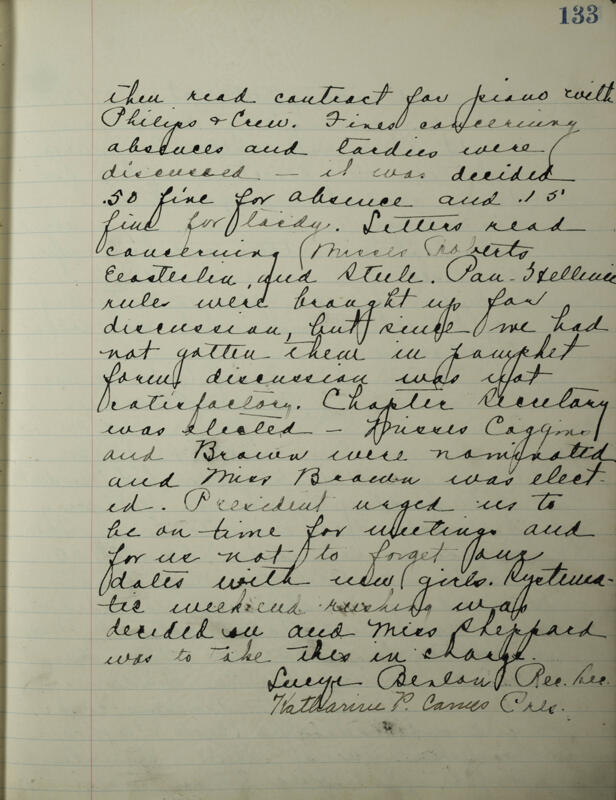 133
then read contract for piano with
Philips & Crew. Fines concerning
absences and tardies were
discussed – it was decided
.50 fine for absence and .15
fine for tardy. Letters read
concerning Misses Roberts
and Steele. Pan-Hellenic
rules were brought up for
discussion, but since we had
not gotten them in pamphet
form, discussion was not
satisfactory. Chapter Secretary
was elected – Misses Coggins
and Brown were nominated
and Miss Brown was elect-
ed. President urged us to
be on time for meetings and
for us not to forget our
dates with new girls. Systema-
tic weekend rushing was
decided on and Miss Sheppard
was to take this in charge.
Lucye Benton Rec. Sec.
Katharine P. Pres.